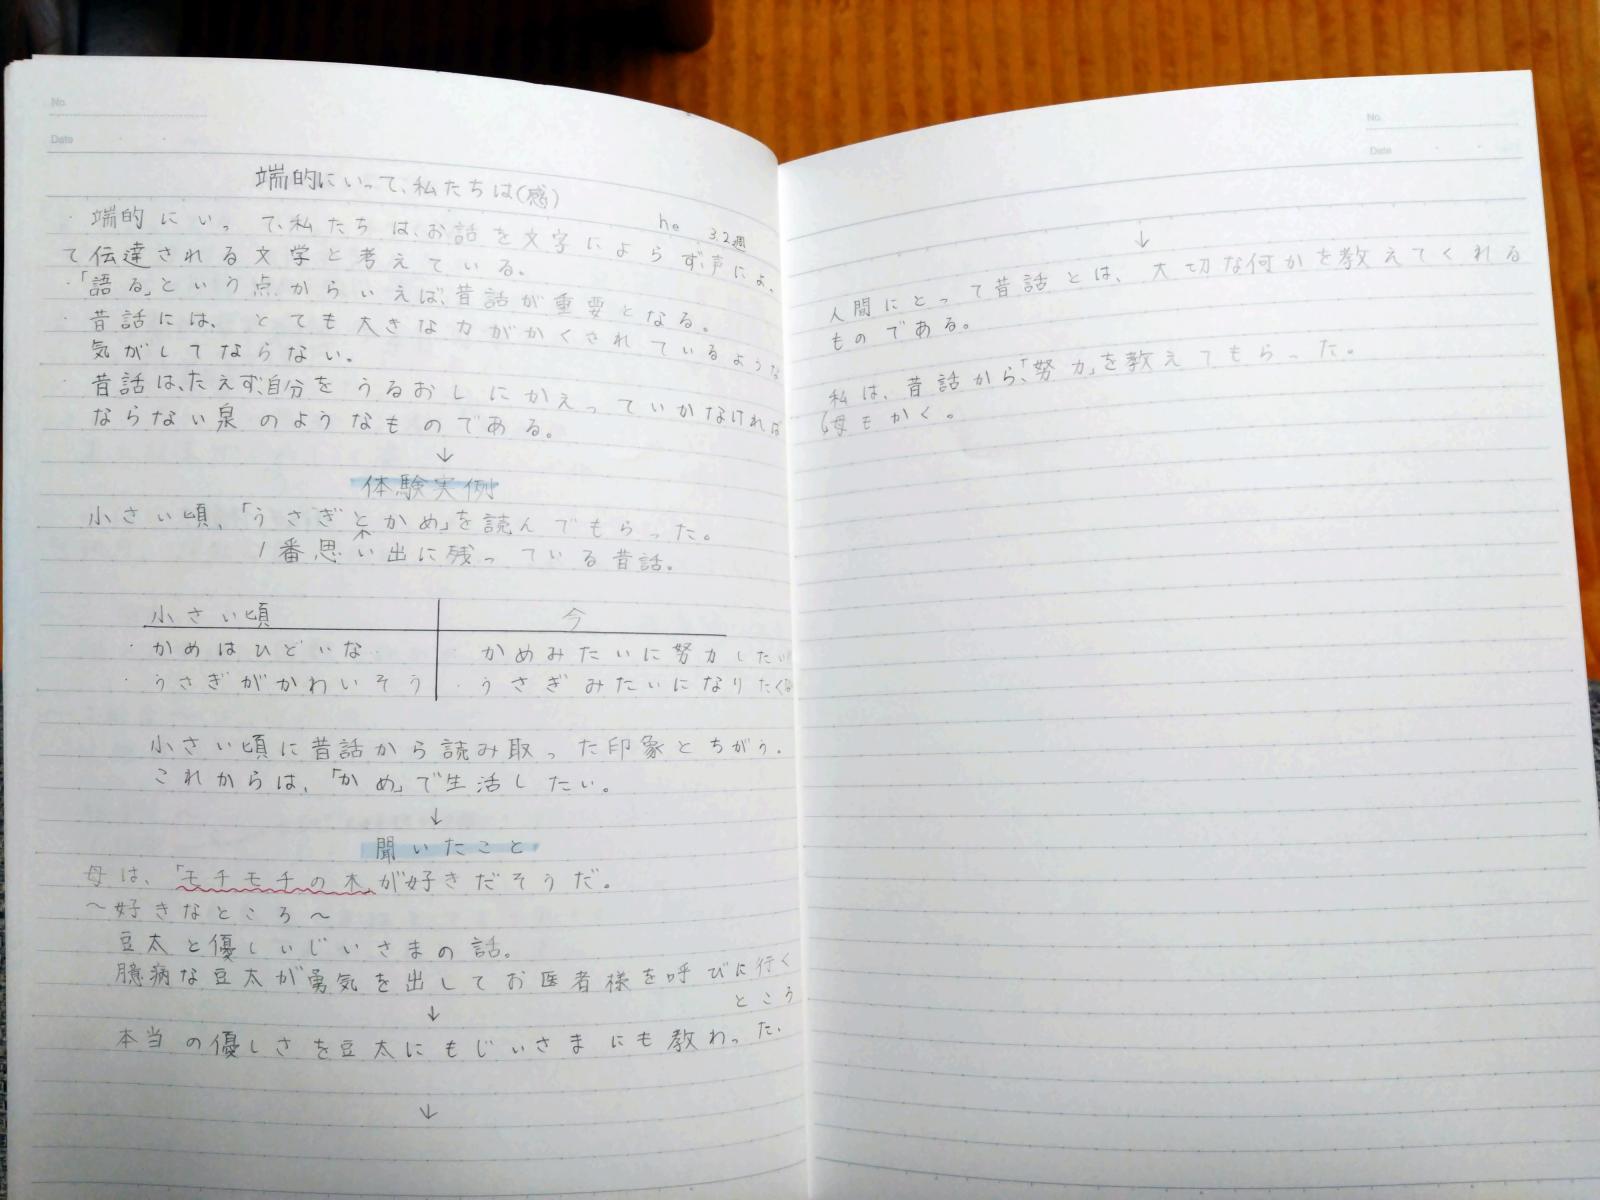 No.
Date
端的にいって、私たちは(感)
he 3.2週
・端的にいって、私たちは、お話を文字によらず、声によっ
て伝達される文学と考えている。
・「語る」という点からいえば、昔話が重要となる。
・昔話には、とても大きな力がかくされているような
気がしてならない。
・昔話は、たえず、自分をうるおしにかえっていかなければ
ならない泉のようなものである。
↓
体験実例
小さい頃、「うさぎとかめ」を読んでもらった。
1番思い出に残っている昔話。
小さい頃 今
・かめはひどいな ・かめみたいに努力したい
・うさぎがかわいそう ・うさぎみたいになりたくな
小さい頃に昔話から読み取った印象とちがう。
これからは、「かめ」で生活したい。
↓
聞いたこと
母は、「モチモチの木」が好きだそうだ。
〜好きなところ〜
豆太と優しいじいさまの話。
臆病な豆太が勇気を出してお医者様を呼びに行く
ところ
↓
本当の優しさを豆太にもじいさまにも教わった。
↓
No.
Date
↓
人間にとって昔話とは、大切な何かを教えてくれる
ものである。
私は、昔話から、「努力」を教えてもらった。
母もかく。